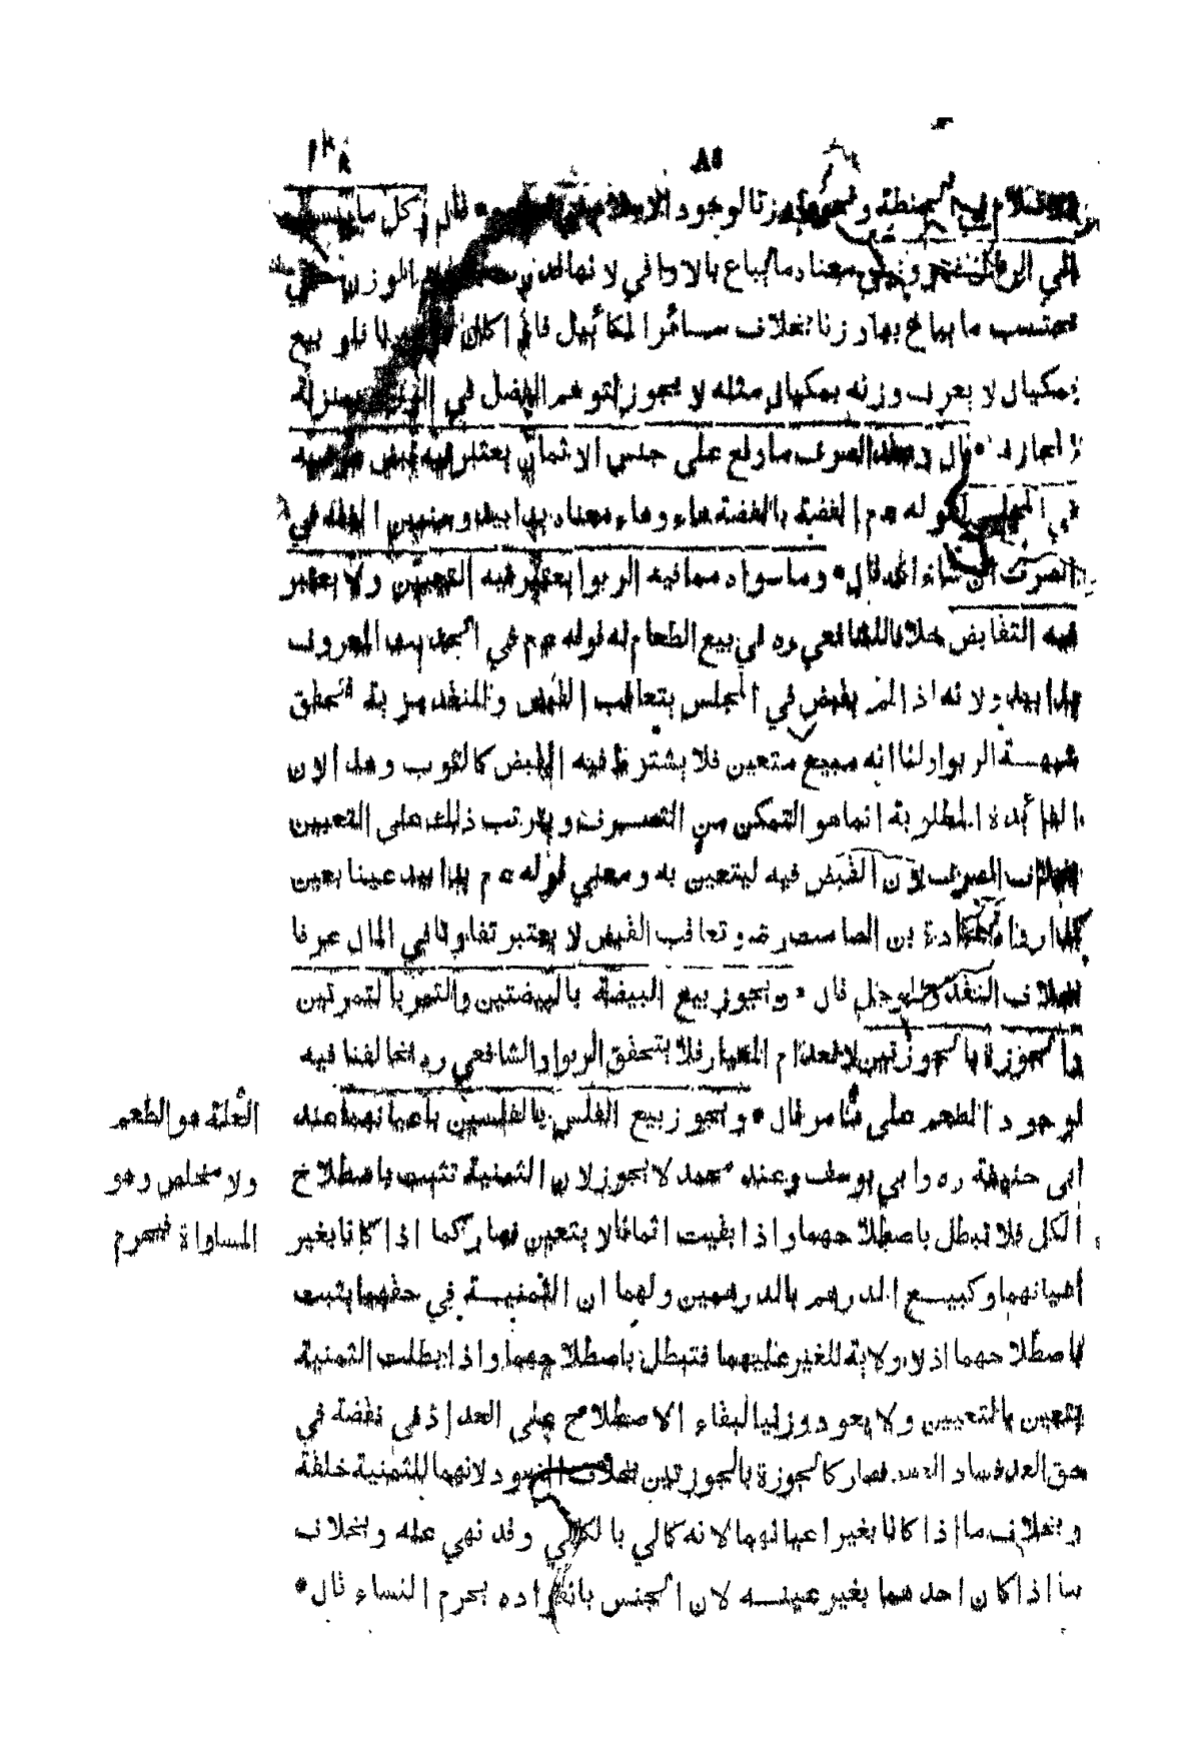 الاسلام في الحنطة ونحوها وزنا لوجود الاسلام في قال وكل ما ينسب
الى الرطل فهو وزني معناه ما يباع بالاواقي لانها قدرت بالوزن حتى
يحتسب ما يباع بها وزنا بخلاف سائر المكائيل فاذا كان فلو بيع
بمكيال لا يعرف وزنه بمكيال مثله لا يجوز لتوهم الفضل في الوزن بمنزلة
قال وعقد الصرف ما وقع على جنس الاثمان يعتبر فيه قبض عوضيه
في المجلس لقوله عم الفضة بالفضة هاء وهاء معناه يدا بيد وسنبين الفقه في
الصرف ان شاء الله قال وما سواه مما فيه الربوا يعتبر فيه التعيين ولا يعتبر
فيه التقابض خلافا للشافعي ره في بيع الطعام له قوله عم في الحديث المعروف
يدا بيد ولانه اذا لم يقبض في المجلس يتعاقب القبض وللنقد مزية فتحقق
شبهة الربوا ولنا انه مبيع متعين فلا يشترط فيه القبض كالثوب وهذا لان
الفائدة المطلوبة انما هو التمكن من التصرف ويترتب ذلك على التعيين
بخلاف الصرف لان القبض فيه ليتعين به ومعنى قوله عم يدا بيد عينا بعين
كذا رواه عبادة بن الصامت رضو تعاقب القبض لا يعتبر تفاوتا في المال عرفا
بخلاف النقد والمؤجل قال ويجوز بيع البيضة بالبيضتين والتمرة بالتمرتين
والجوزة بالجوزتين لانعدام المعيار فلا يتحقق الربوا والشافعي ره يخالفنا فيه
لوجود الطعم على ما مر قال ويجوز بيع الفلس بالفلسين باعيانهما عند
ابي حنيفة ره وابي يوسف وعند محمد لا يجوز لان الثمنية تثبت باصطلاح
الكل فلا تبطل باصطلاحهما واذا بقيت اثمانا لا يتعين فصار كما اذا كانا بغير
اعيانهما وكبيع الدرهم بالدرهمين ولهما ان الثمنية في حقهما يثبت
باصطلاحهما اذ لا ولاية للغير عليهما فتبطل باصطلاحهما واذا بطلت الثمنية
يتعين بالتعيين ولا يعود وزنيا لبقاء الاصطلاح على العد اذ في نقضه في
حق العد فساد العقد فصار كالجوزة بالجوزتين بخلاف النقود لانهما للثمنية خلقة
وبخلاف ما اذا كانا بغير اعيانهما لانه كالي بالكالي وقد نهي عنه وبخلاف
ما اذا كان احدهما بغير عينه لان الجنس بانفراده يحرم النساء قال
العلة هو الطعم
ولا مخلص وهو
المساواة فيحرم